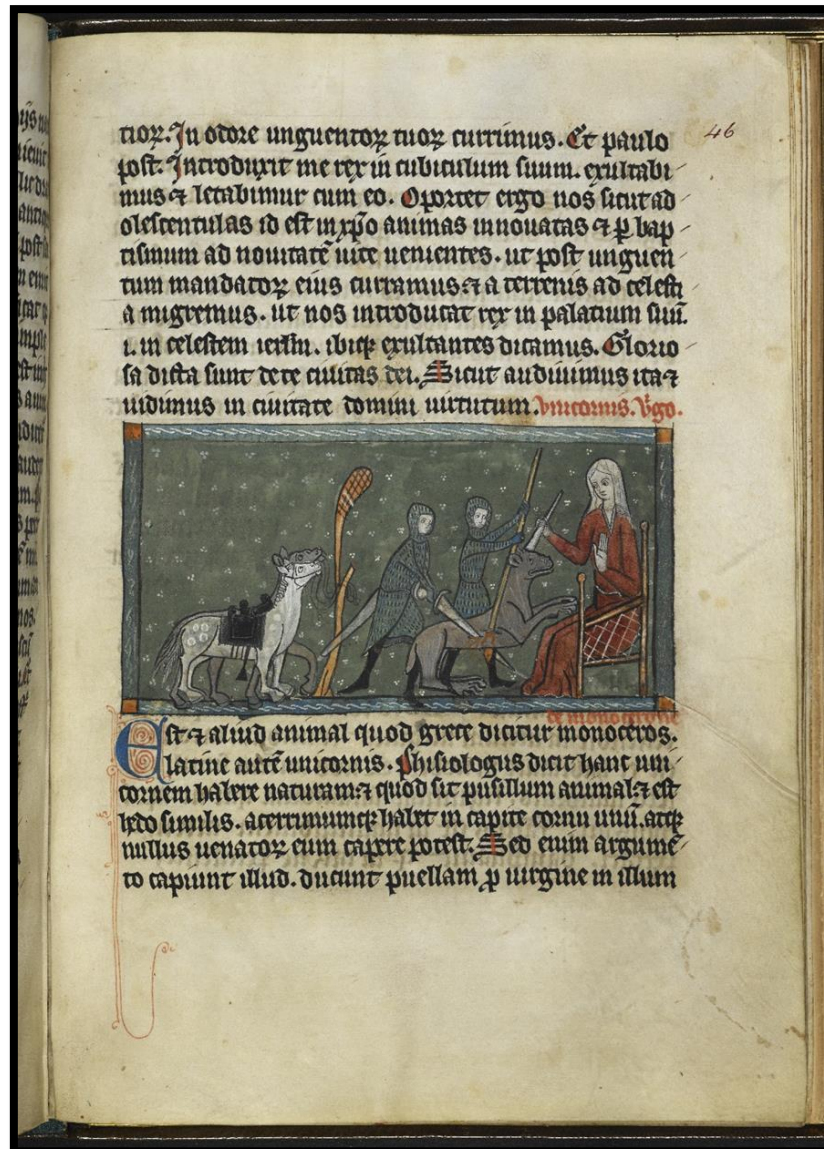 46
tioꝝ. In odore unguentoꝝ tuoꝝ currimus. Et paulo
post. Introduxit me rex in cubiculum suum. exultabi
mus ⁊ letabimur cum eo. Oportet ergo nos sicut ad
olescentulas id est in xp̄o animas innouatas ⁊ ꝑ bap
tismum ad nouitatē uite uenientes. ut post unguen
tum mandatoꝝ eius curramus ⁊ a terrenis ad celesti
a migremus. ut nos introducat rex in palatium suū.
i. in celestem ierl̄m. ibiqꝫ exultantes dicamus. Glorio
sa dicta sunt de te ciuitas dei. Sicut audiuimus ita ⁊
uidimus in ciuitate domini uirtutum. Vnicornis. Vͥgo.
de monocerone
Est ⁊ aliud animal quod grece dicitur monoceros.
latine autē unicornis. Phisiologus dicit hanc uni
cornem habere naturam ⁊ quod sit pusillum animal ⁊ est
hedo similis. acerrimumqꝫ habet in capite cornu unū. atqꝫ
nullus uenatoꝝ eum capere potest. Sed enim argumē
to capiunt illud. ducunt puellam ꝓ uirgine in illum